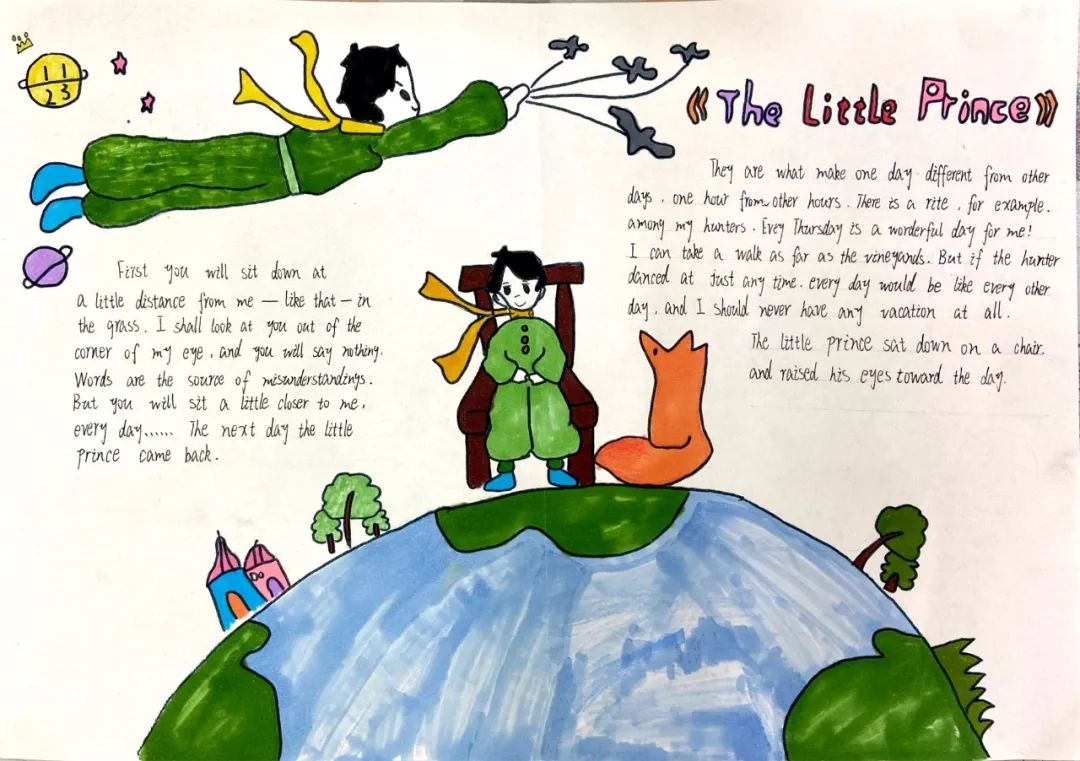 11
23
《The Little Prince》
First you will sit down at
a little distance from me — like that — in
the grass. I shall look at you out of the
corner of my eye, and you will say nothing.
Words are the source of misunderstandings.
But you will sit a little closer to me,
every day...... The next day the little
prince came back.
They are what make one day different from other
days, one hour from other hours. There is a rite, for example.
among my hunters. Evey Thursday is a worderful day for me!
I can take a walk as far as the vineyards. But if the hunter
danced at just any time. every day would be like every other
day, and I should never have any vacation at all.
The little prince sat down on a chair.
and raised his eyes toward the day.